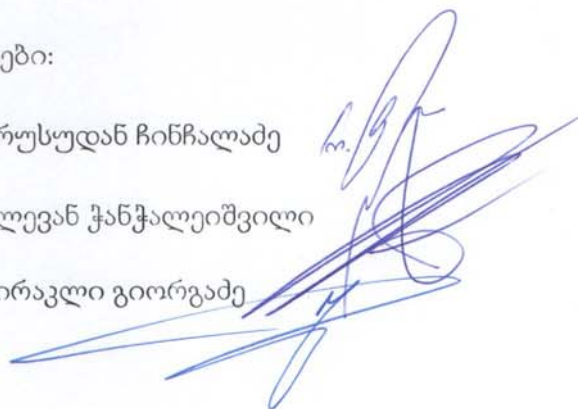 ები:
რუსუდან ჩინჩალაძე
ლევან ჭანჭალეიშვილი
ირაკლი გიორგაძე